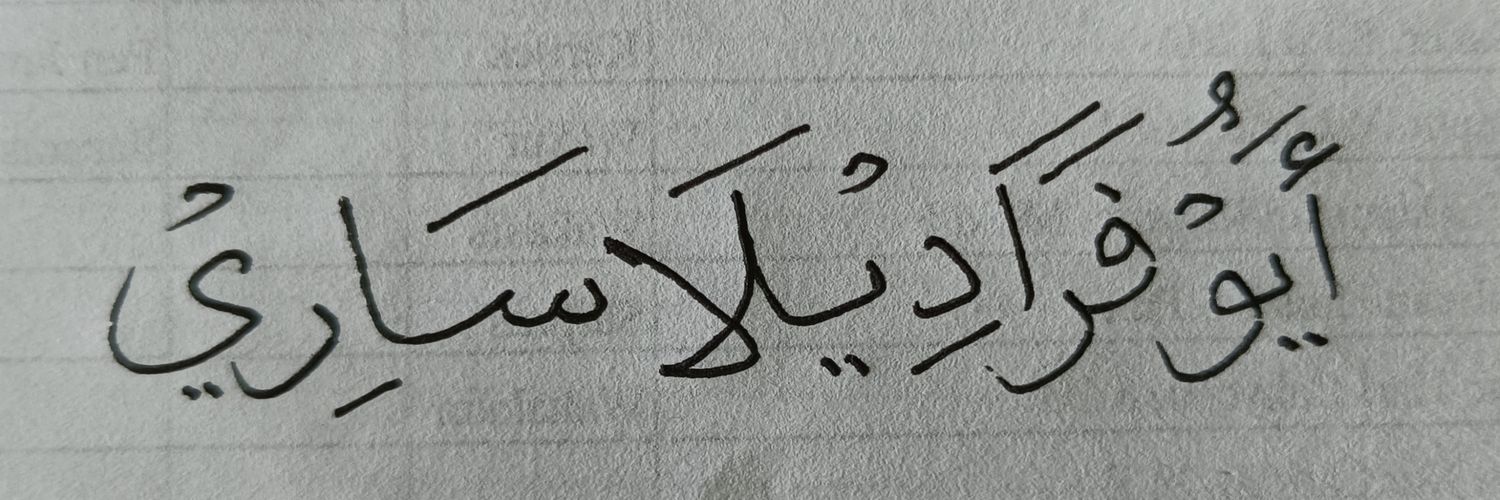 أَيُوْ فَرَادِيْلَاسَارِيْ